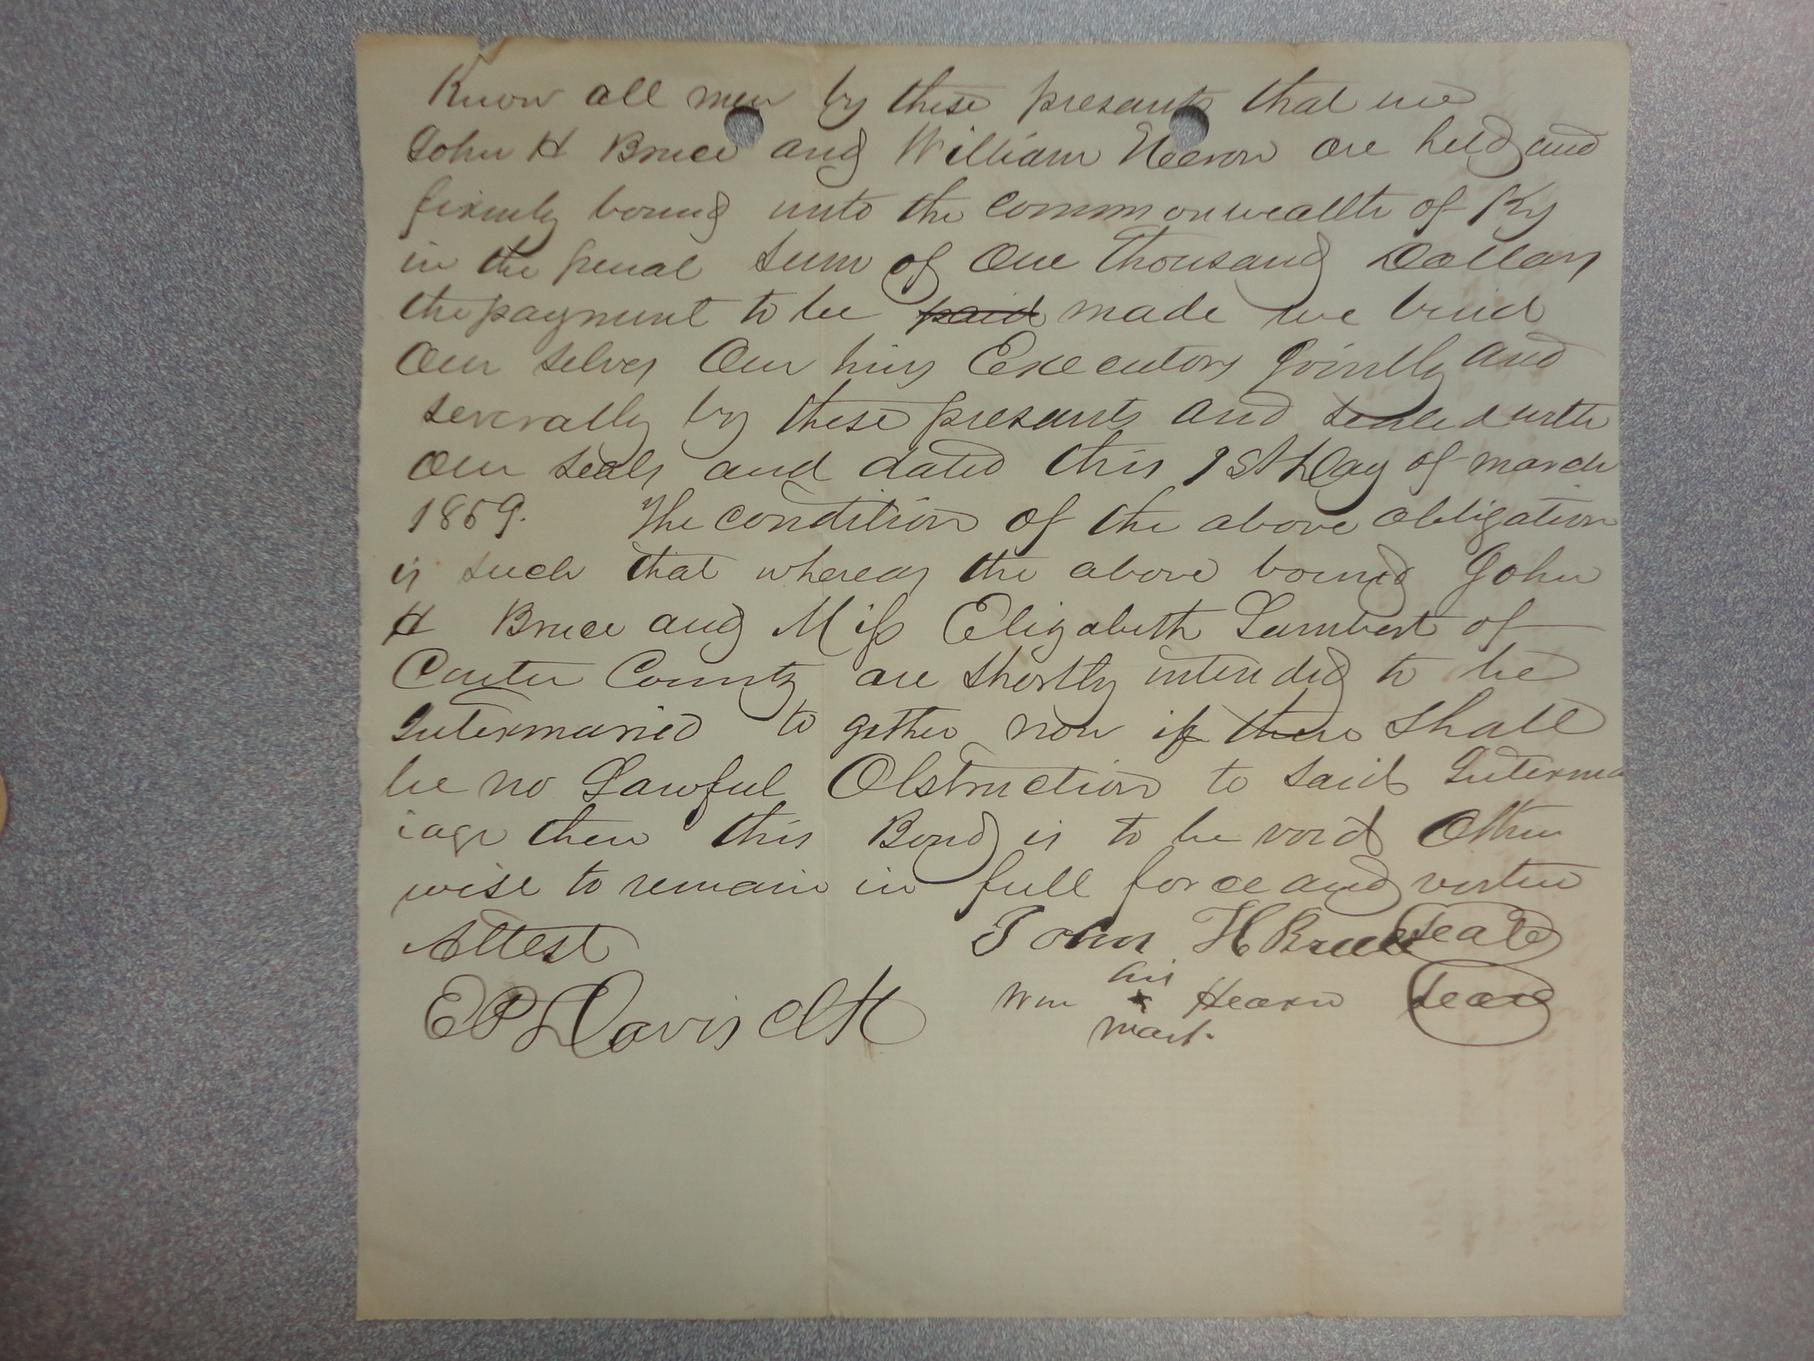 Know all men by these presants that we
John H Bruce and William Hearon are held and
firmly bound unto the commonwealth of Ky
in the penal sum of One Thousand Dollars
the payment to be paid made we bind
Our selves Our hirs Executors Jointly and
severally by these presants and sealed with
Our seals and dated this 1st Day of march
1859. The condition of the above obligation
is such that whereas the above bound John
H Bruce and Miss Elizabeth Lambert of
Carter County are shortly intended to be
Intermaried to gether now if there shall
be no Lawful Obstruction to said Interma
iage then this Bond is to be void Other
wise to remain in full force and vertue
Attest John H Bruce Seal
his
Wm x Hearn Seal
mark.
E P Davis Clk